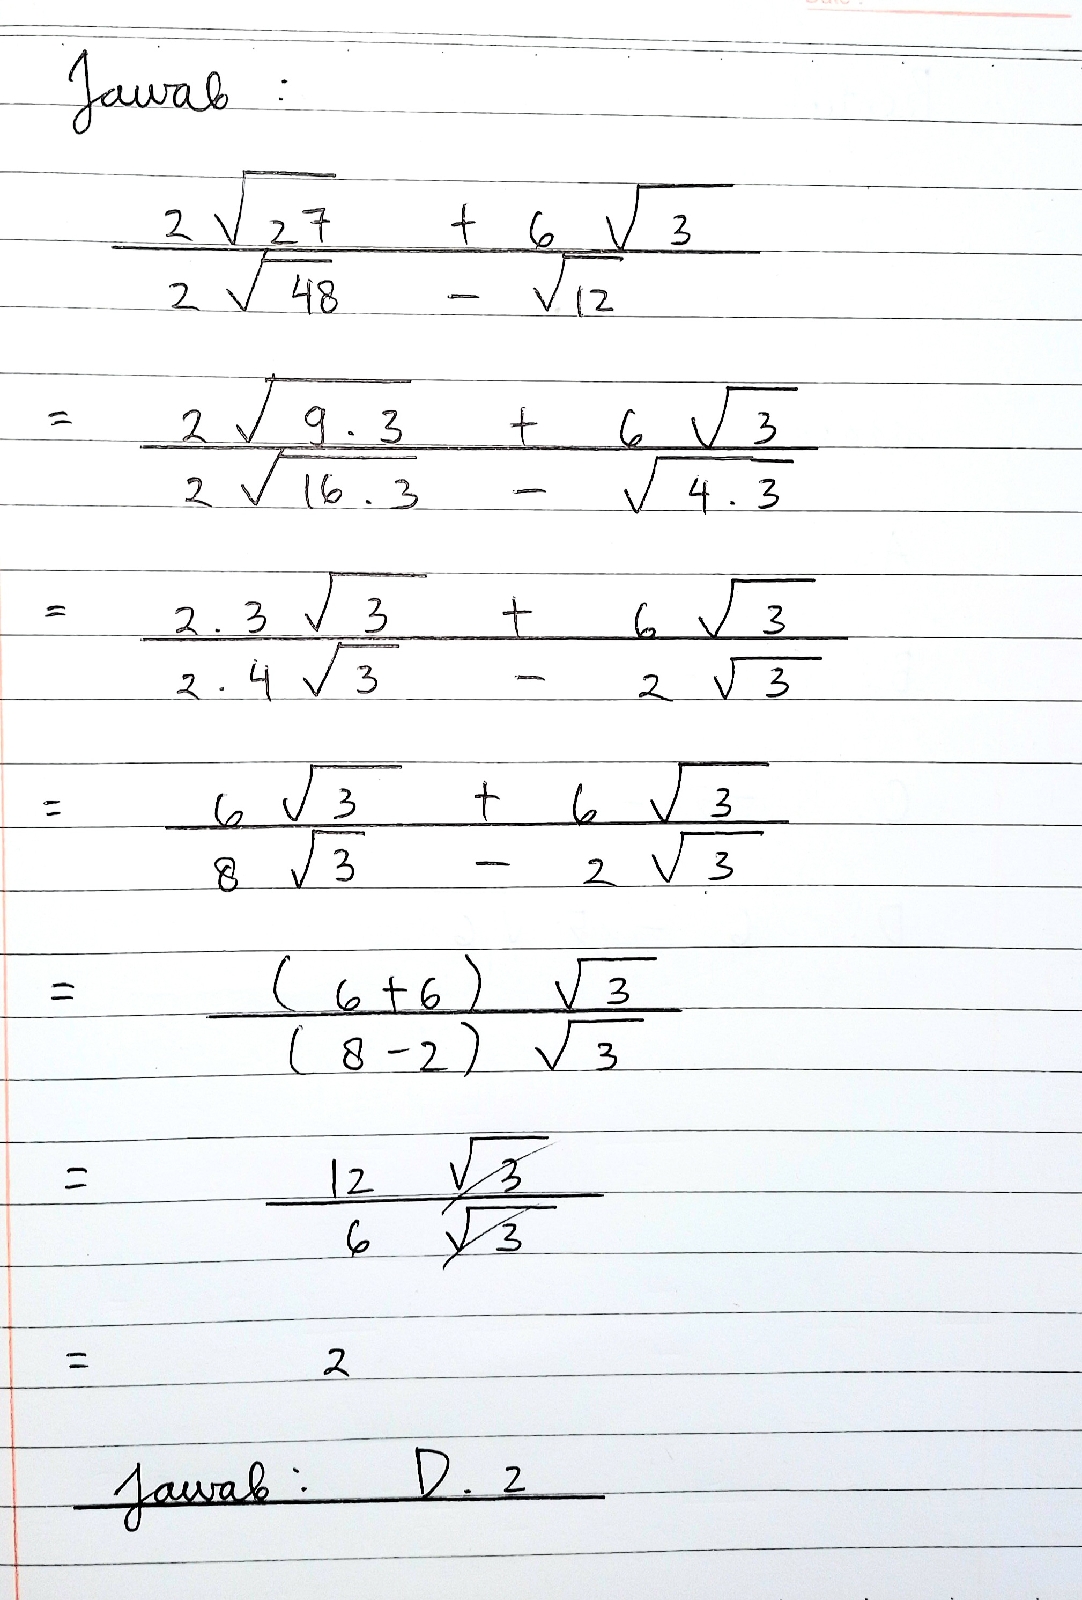 Jawab :
2 √27 + 6 √3
2 √48 - √12
= 2 √9.3 + 6 √3
2 √16.3 - √4.3
= 2.3 √3 + 6 √3
2.4 √3 - 2 √3
= 6 √3 + 6 √3
8 √3 - 2 √3
= (6+6) √3
(8-2) √3
= 12 √3
6 √3
= 2
Jawab : D. 2